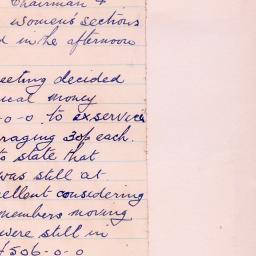 Chairman &
women's sections
d in the afternoon
eeting decided
ual money
0-0 to exservice
raging 30/- each.
to state that
was still at
cellent considering
members moving
were still in
£506-0-0